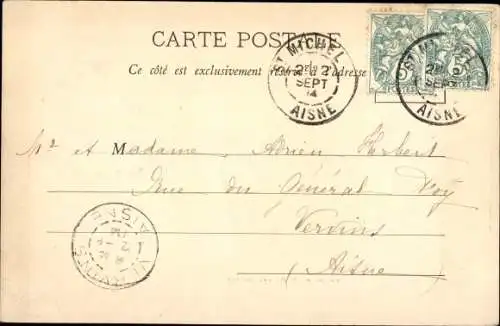 CARTE POSTALE
Ce côté est exclusivement réservé à l'adresse
ST MICHEL
2E 2
SEPT
14
AISNE
ST MICHEL
SEPT
AISNE
POSTES
Mr et Madame Adrien Herbert
Rue du Général Foy
Vervins
Aisne
VERVINS
AISNE